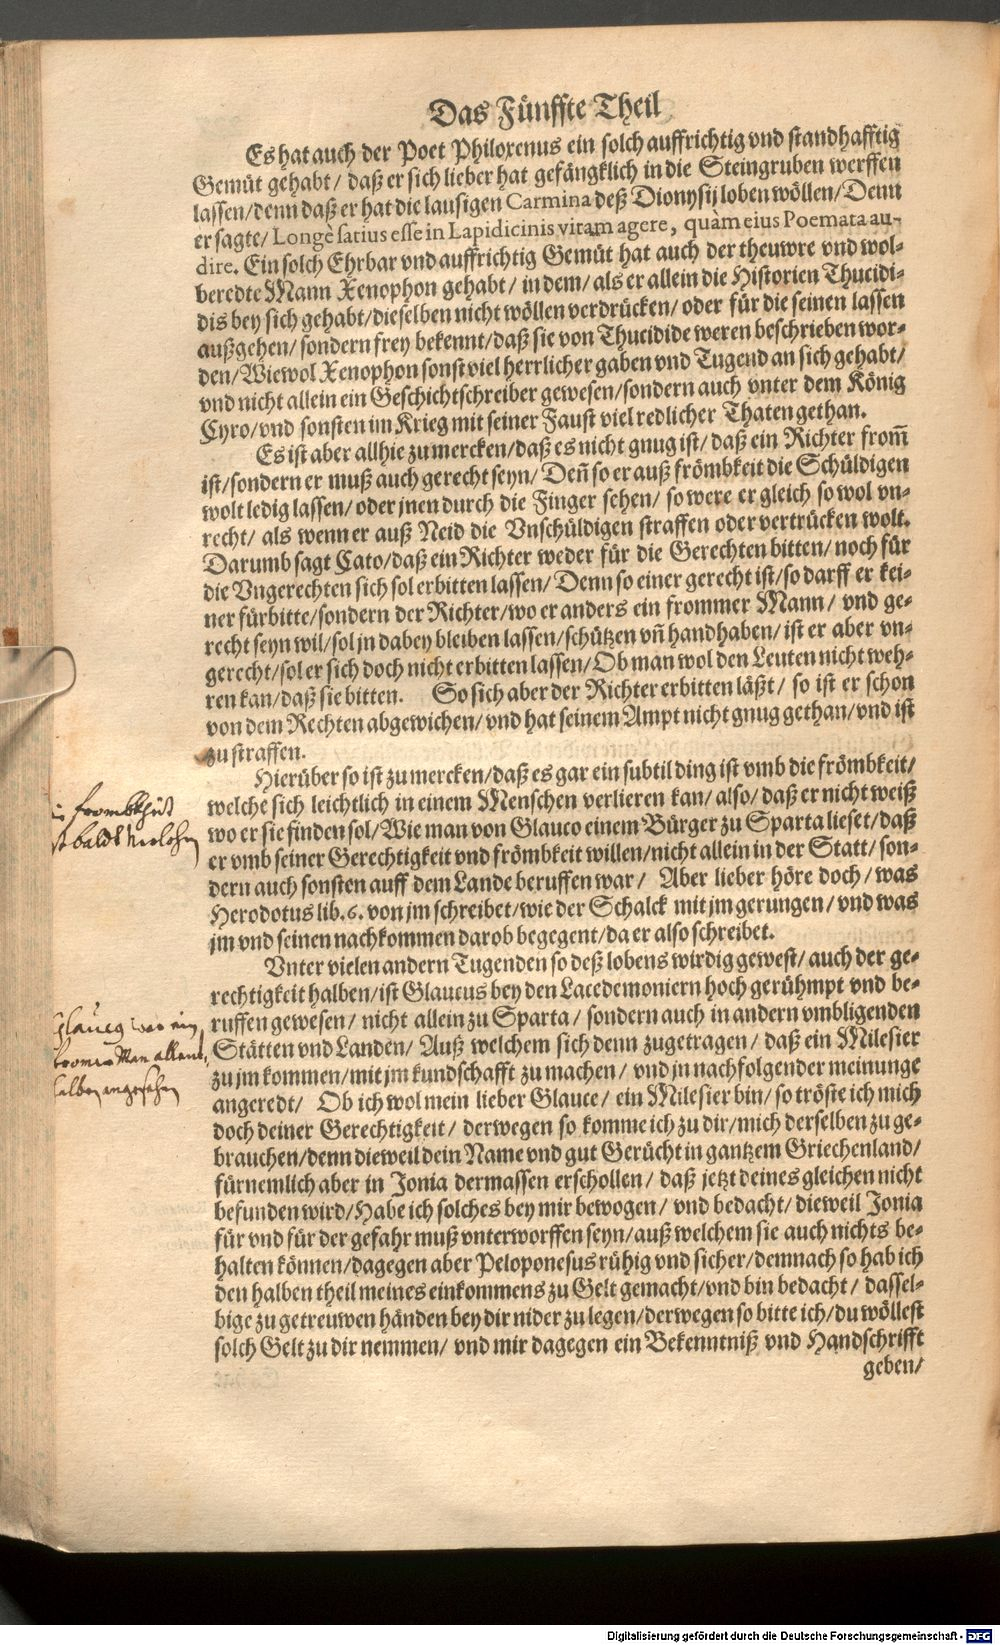 Das Fünffte Theil
Es hat auch der Poet Philoxenus ein solch auffrichtig vnd standhafftig
Gemüt gehabt/ daß er sich lieber hat gefängklich in die Steingruben werffen
lassen/denn daß er hat die lausigen Carmina deß Dionysij loben wöllen/Denn
er sagte/ Longè satius esse in Lapidicinis vitam agere, quàm eius Poemata au-
dire. Ein solch Ehrbar vnd auffrichtig Gemüt hat auch der theuwre vnd wol-
beredte Mann Xenophon gehabt/ in dem/ als er allein die Historien Thucidi-
dis bey sich gehabt/dieselben nicht wöllen verdrücken/ oder für die seinen lassen
außgehen/ sondern frey bekennt/daß sie von Thucidide weren beschrieben wor-
den/Wiewol Xenophon sonst viel herrlicher gaben vnd Tugend an sich gehabt/
vnd nicht allein ein Geschichtschreiber gewesen/sondern auch vnter dem König
Cyro/vnd sonsten im Krieg mit seiner Faust viel redlicher Thaten gethan.
Es ist aber allhie zu mercken/daß es nicht gnug ist/ daß ein Richter from̃
ist/sondern er muß auch gerecht seyn/ Deñ so er auß frömbkeit die Schüldigen
wolt ledig lassen/ oder jnen durch die Finger sehen/ so were er gleich so wol vn-
recht/ als wenn er auß Neid die Vnschüldigen straffen oder vertrücken wolt.
Darumb sagt Cato/daß ein Richter weder für die Gerechten bitten/ noch für
die Vngerechten sich sol erbitten lassen/ Denn so einer gerecht ist/so darff er kei-
ner fürbitte/sondern der Richter/wo er anders ein frommer Mann/ vnd ge-
recht seyn wil/sol jn dabey bleiben lassen/schützen vñ handhaben/ ist er aber vn-
gerecht/sol er sich doch nicht erbitten lassen/Ob man wol den Leuten nicht weh-
ren kan/daß sie bitten. So sich aber der Richter erbitten läßt/ so ist er schon
von dem Rechten abgewichen/vnd hat seinem Ampt nicht gnug gethan/vnd ist
zu straffen.
Hierüber so ist zu mercken/daß es gar ein subtil ding ist vmb die frömbkeit/
welche sich leichtlich in einem Menschen verlieren kan/ also/ daß er nicht weiß
wo er sie finden sol/Wie man von Glauco einem Bürger zu Sparta lieset/daß
er vmb seiner Gerechtigkeit vnd frömbkeit willen/nicht allein in der Statt/ son-
dern auch sonsten auff dem Lande beruffen war/ Aber lieber höre doch/was
Herodotus lib. 6. von jm schreibet/wie der Schalck mit jm gerungen/vnd was
jm vnd seinen nachkommen darob begegent/da er also schreibet.
Vnter vielen andern Tugenden so deß lobens wirdig gewest/auch der ge-
rechtigkeit halben/ist Glaucus bey den Lacedemoniern hoch gerühmpt vnd be-
ruffen gewesen/ nicht allein zu Sparta/ sondern auch in andern vmbligenden
Stätten vnd Landen/ Auß welchem sich denn zugetragen/ daß ein Milesier
zu jm kommen/mit jm kundschafft zu machen/ vnd jn nachfolgender meinunge
angeredt/ Ob ich wol mein lieber Glauce/ ein Milesier bin/ so tröste ich mich
doch deiner Gerechtigkeit/ derwegen so komme ich zu dir/mich derselben zu ge-
brauchen/denn dieweil dein Name vnd gut Gerücht in gantzem Griechenland/
fürnemlich aber in Jonia dermassen erschollen/ daß jetzt deines gleichen nicht
befunden wird/Habe ich solches bey mir bewogen/ vnd bedacht/ dieweil Jonia
für vnd für der gefahr muß vnterworffen seyn/auß welchem sie auch nichts be-
halten können/dagegen aber Peloponesus rühig vnd sicher/demnach so hab ich
den halben theil meines einkommens zu Gelt gemacht/vnd bin bedacht/ dassel-
bige zu getreuwen händen bey dir nider zu legen/derwegen so bitte ich/du wöllest
solch Gelt zu dir nemmen/ vnd mir dagegen ein Bekenntniß vnd Handschrifft
geben/
frombkheit
bald verlohrn
Glaucus war ein
fromer Man allent-
halben angesehen
Digitalisierung gefördert durch die Deutsche Forschungsgemeinschaft - DFG